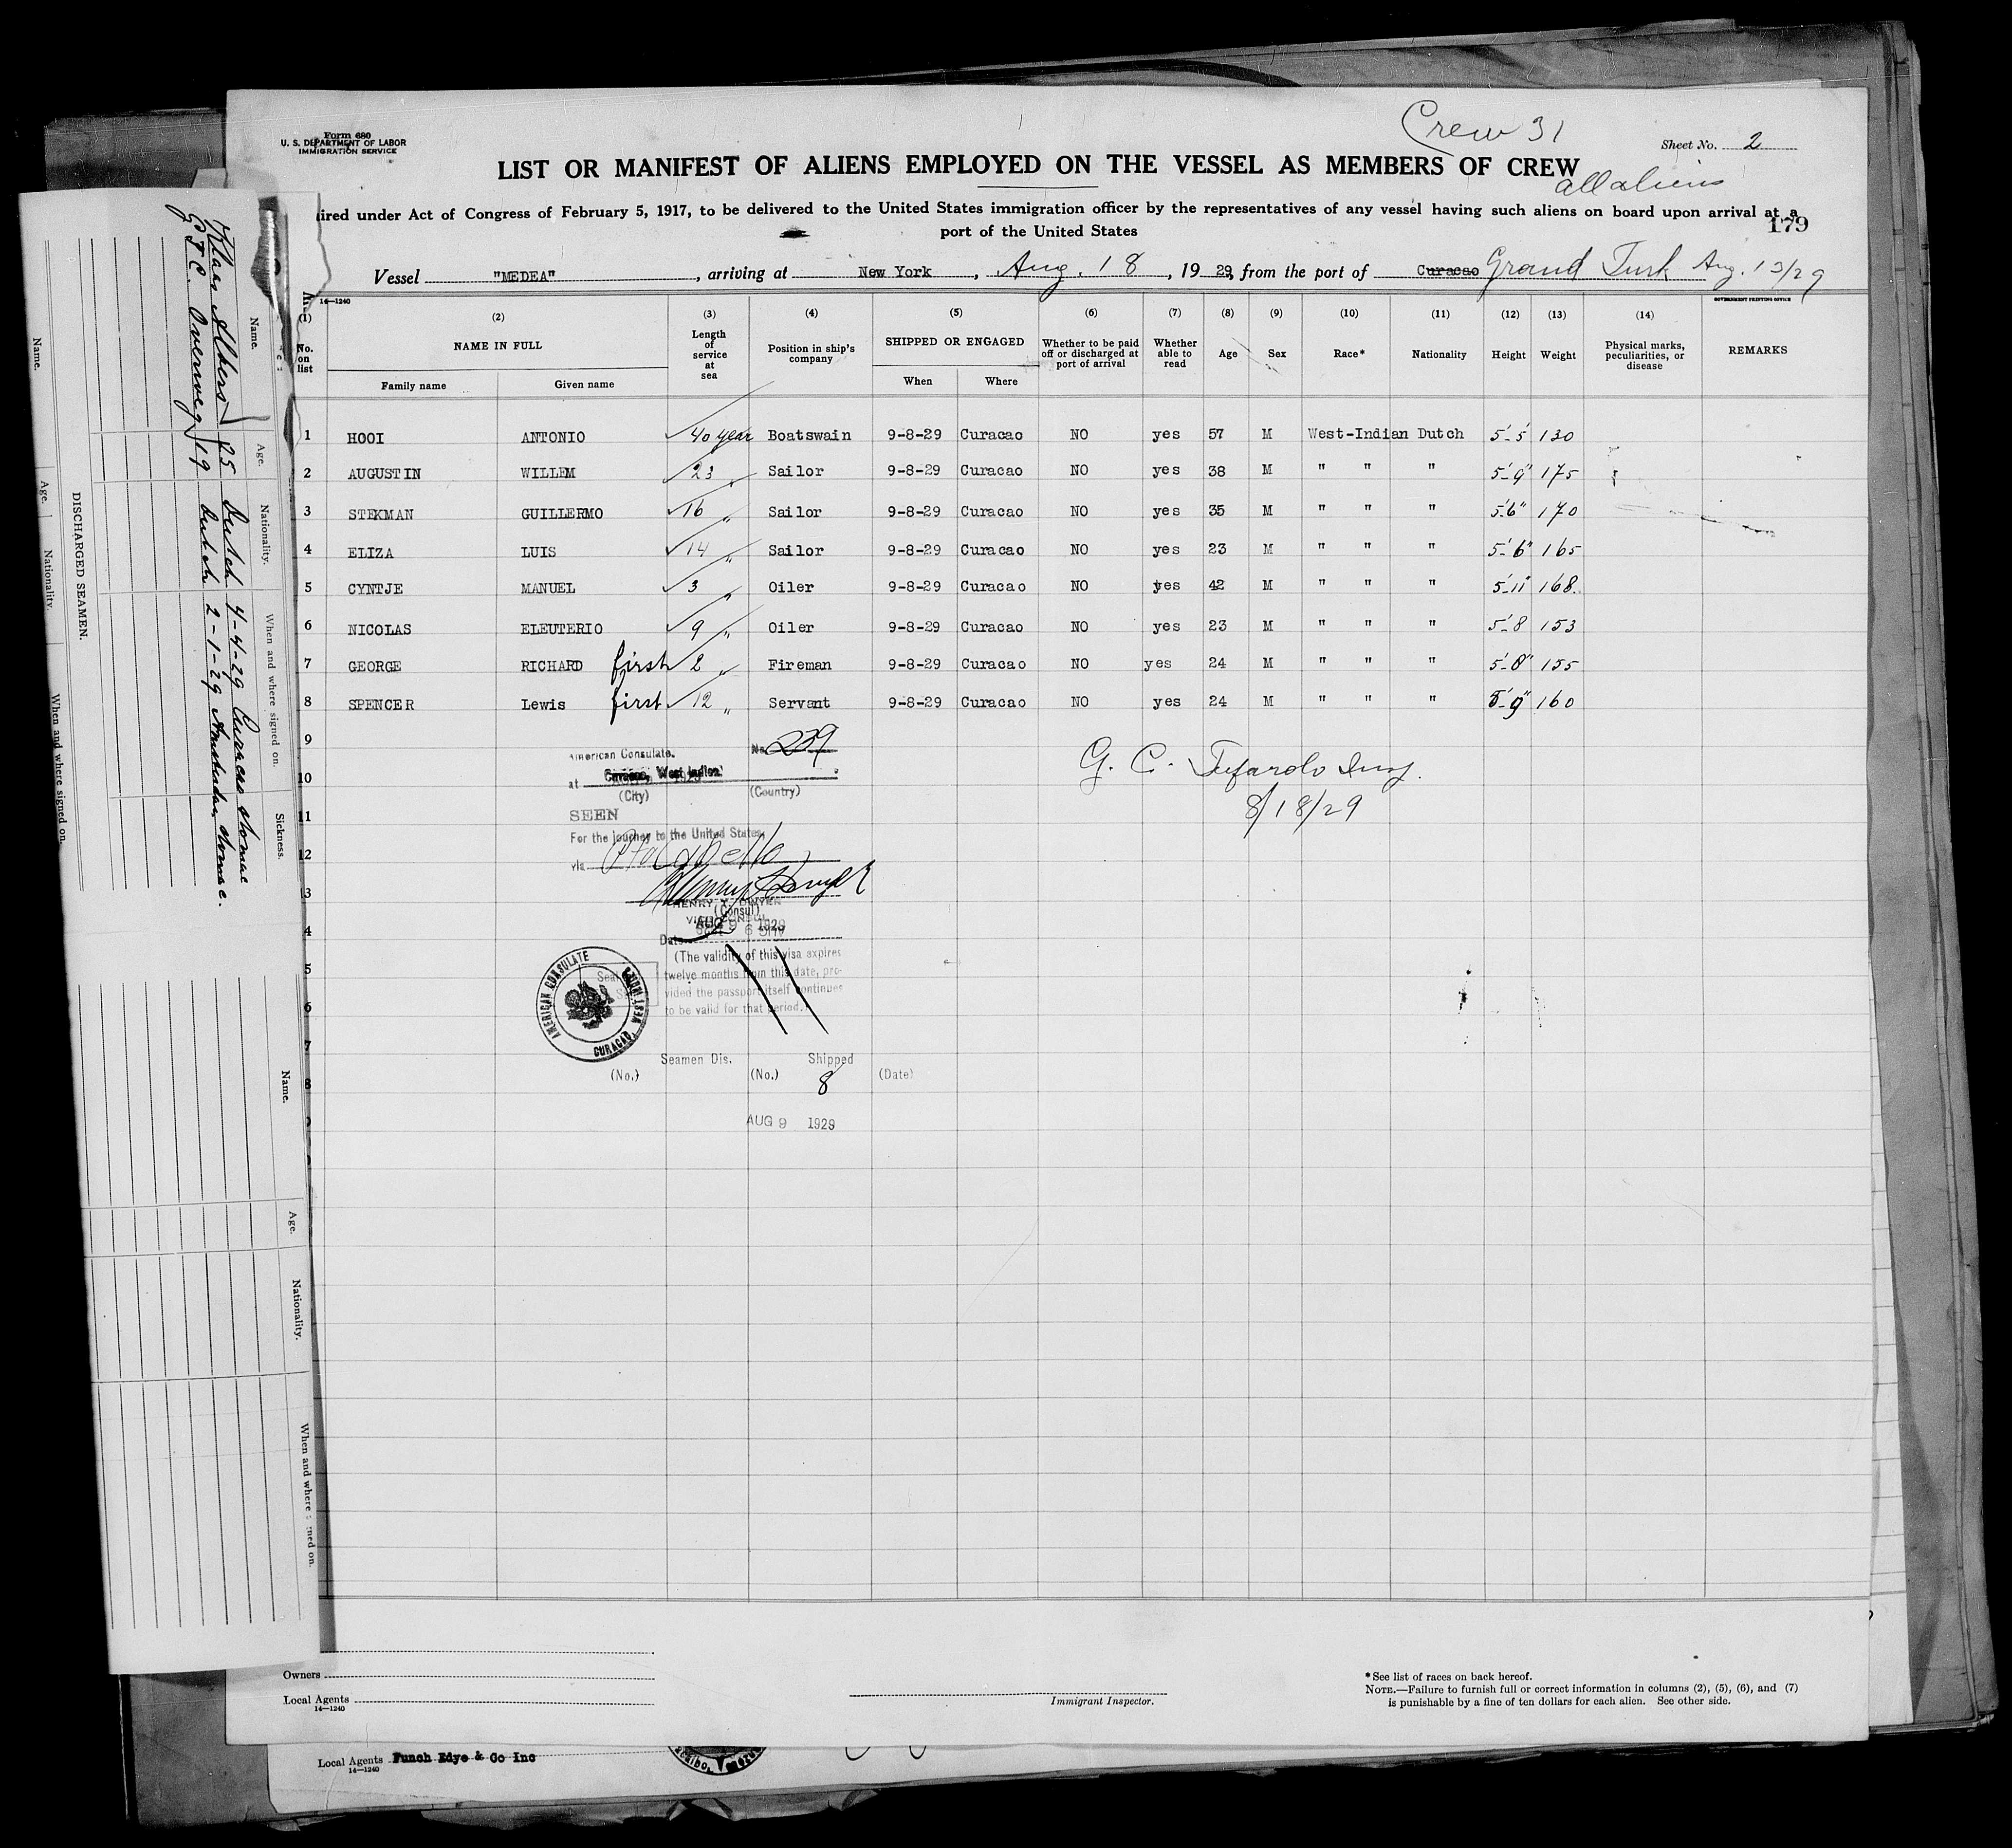 Form 680
U. S. DEPARTMENT OF LABOR
IMMIGRATION SERVICE
Crew 31
Sheet No. 2
LIST OR MANIFEST OF ALIENS EMPLOYED ON THE VESSEL AS MEMBERS OF CREW
all aliens
ired under Act of Congress of February 5, 1917, to be delivered to the United States immigration officer by the representatives of any vessel having such aliens on board upon arrival at a
port of the United States
179
Vessel "MEDEA", arriving at New York, Aug. 18, 1929, from the port of Curacao Grand Turk Aug. 13/29
14—1240
GOVERNMENT PRINTING OFFICE
(1) (2) (3) (4) (5) (6) (7) (8) (9) (10) (11) (12) (13) (14)
No. on list NAME IN FULL Length of service at sea Position in ship's company SHIPPED OR ENGAGED Whether to be paid off or discharged at port of arrival Whether able to read Age Sex Race* Nationality Height Weight Physical marks, peculiarities, or disease REMARKS
Family name Given name When Where
1 HOOI ANTONIO 40 year Boatswain 9-8-29 Curacao NO yes 57 M West-Indian Dutch 5'-5 130
2 AUGUSTIN WILLEM 23 " Sailor 9-8-29 Curacao NO yes 38 M " " " 5'-9" 175
3 STEKMAN GUILLERMO 16 " Sailor 9-8-29 Curacao NO yes 35 M " " " 5'6" 170
4 ELIZA LUIS 14 " Sailor 9-8-29 Curacao NO yes 23 M " " " 5'-6" 165
5 CYNTJE MANUEL 3 " Oiler 9-8-29 Curacao NO yes 42 M " " " 5'-11" 168.
6 NICOLAS ELEUTERIO 9 " Oiler 9-8-29 Curacao NO yes 23 M " " " 5'-8 153
7 GEORGE RICHARD first 2 " Fireman 9-8-29 Curacao NO yes 24 M " " " 5'-8" 155
8 SPENCER Lewis first 12 " Servant 9-8-29 Curacao NO yes 24 M " " " 5'-9" 160
9
10
11
12
3
4
5
6
7
8
American Consulate. No. 239
at Curacao, West Indies.
(City) (Country)
SEEN
For the journey to the United States,
via
HENRY T. DWYER
(Consul)
VICE CONSUL
Date AUG 9 1929
(The validity of this visa expires
twelve months from this date, pro-
vided the passport itself continues
to be valid for that period.)
Seal
AMERICAN CONSULATE
CURACAO, WEST INDIES
Seamen Dis. Shipped
(No.) (No.) 8 (Date)
AUG 9 1929
G. C. Insp.
8/18/29
Owners
Local Agents
14—1240
Immigrant Inspector.
*See list of races on back hereof.
NOTE.—Failure to furnish full or correct information in columns (2), (5), (6), and (7)
is punishable by a fine of ten dollars for each alien. See other side.
Local Agents Funch Edye & Co Inc
14—1240
DISCHARGED SEAMEN.
Name. Age. Nationality. When and where signed on. Sickness.
Klaas Albers 25 Dutch 4-4-29 Curacao
G F C. Overweg 19 Dutch 2-1-29 Amsterdam
Name. Age. Nationality. When and where signed on.
Name. Age. Nationality. When and where signed on.